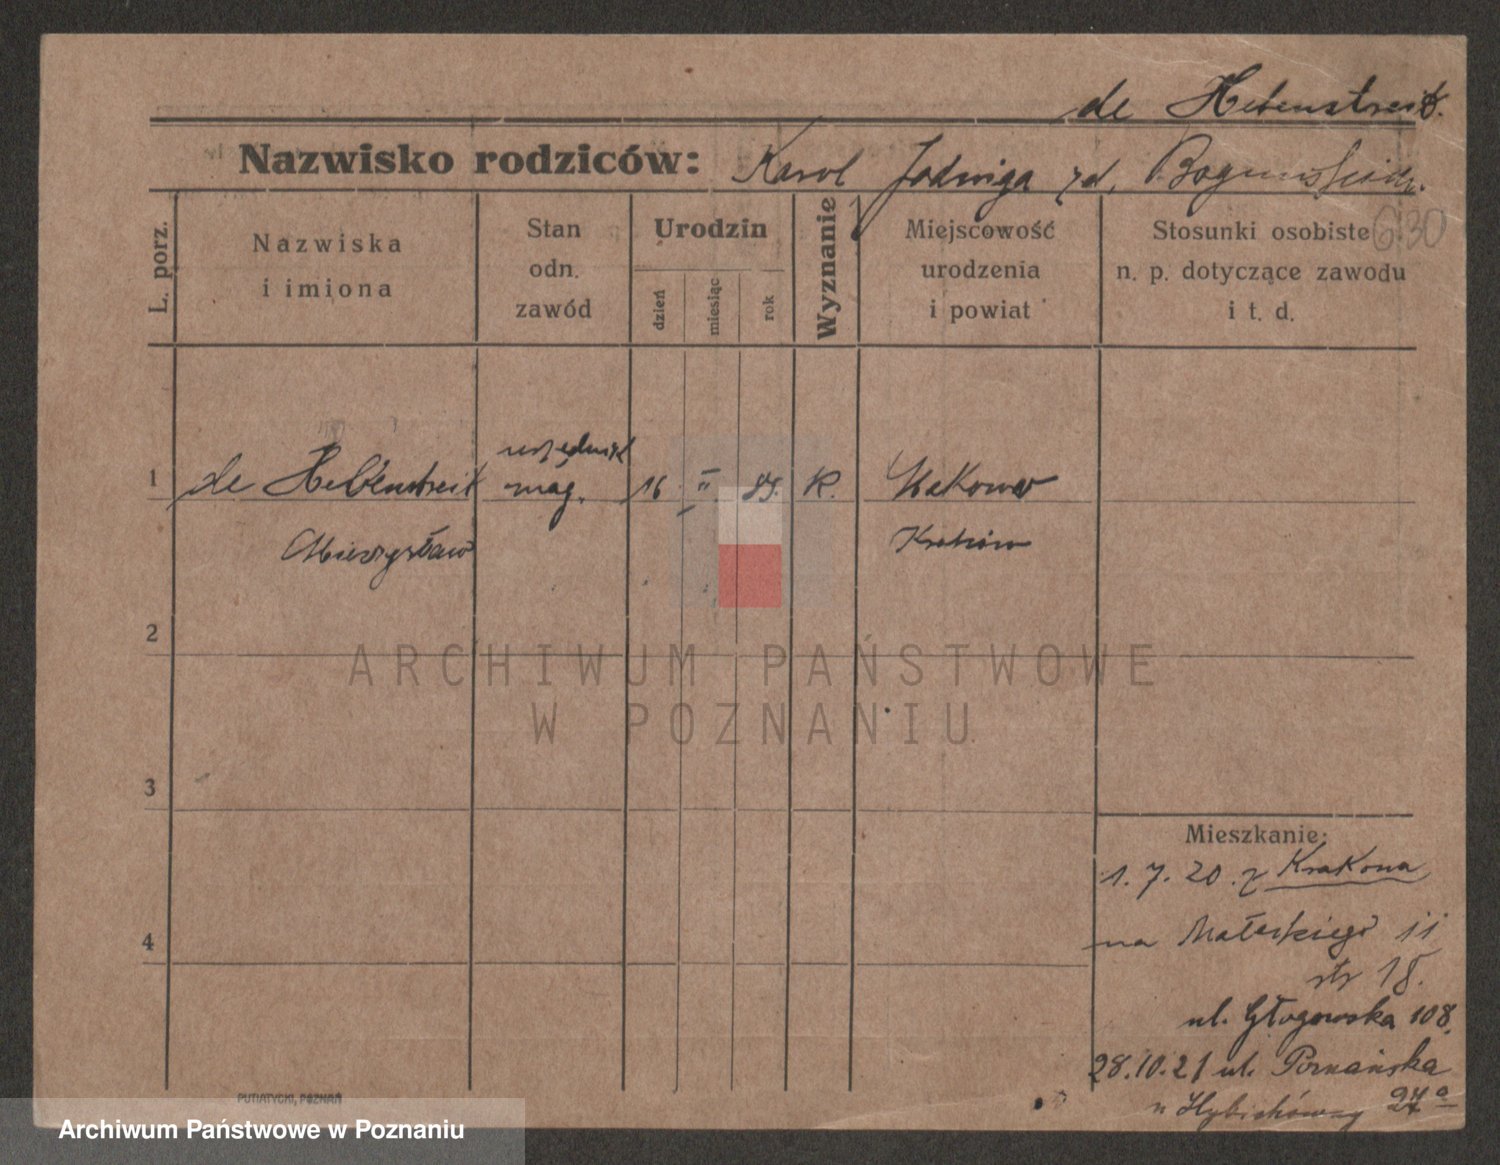 de Hebenstreit.
Nazwisko rodziców: Karol Jadwiga zd.
630
L. porz.
Nazwiska
i imiona
Stan
odn.
zawód
Urodzin
dzień
miesiąc
rok
Wyznanie
Miejscowość
urodzenia
i powiat
Stosunki osobiste
n. p. dotyczące zawodu
i t. d.
1 de Hebenstreit urzędnik
mag. 16 II K.
Mieczysław Kraków
2
3
4
Mieszkanie:
1. 7. 20. z Krakowa
na Małeckiego 11
str 18.
ul. Głogowska 108.
28.10.21 ul. Poznańska
27a
PUTIATYCKI, POZNAŃ
ARCHIWUM PAŃSTWOWE
W POZNANIU
Archiwum Państwowe w Poznaniu